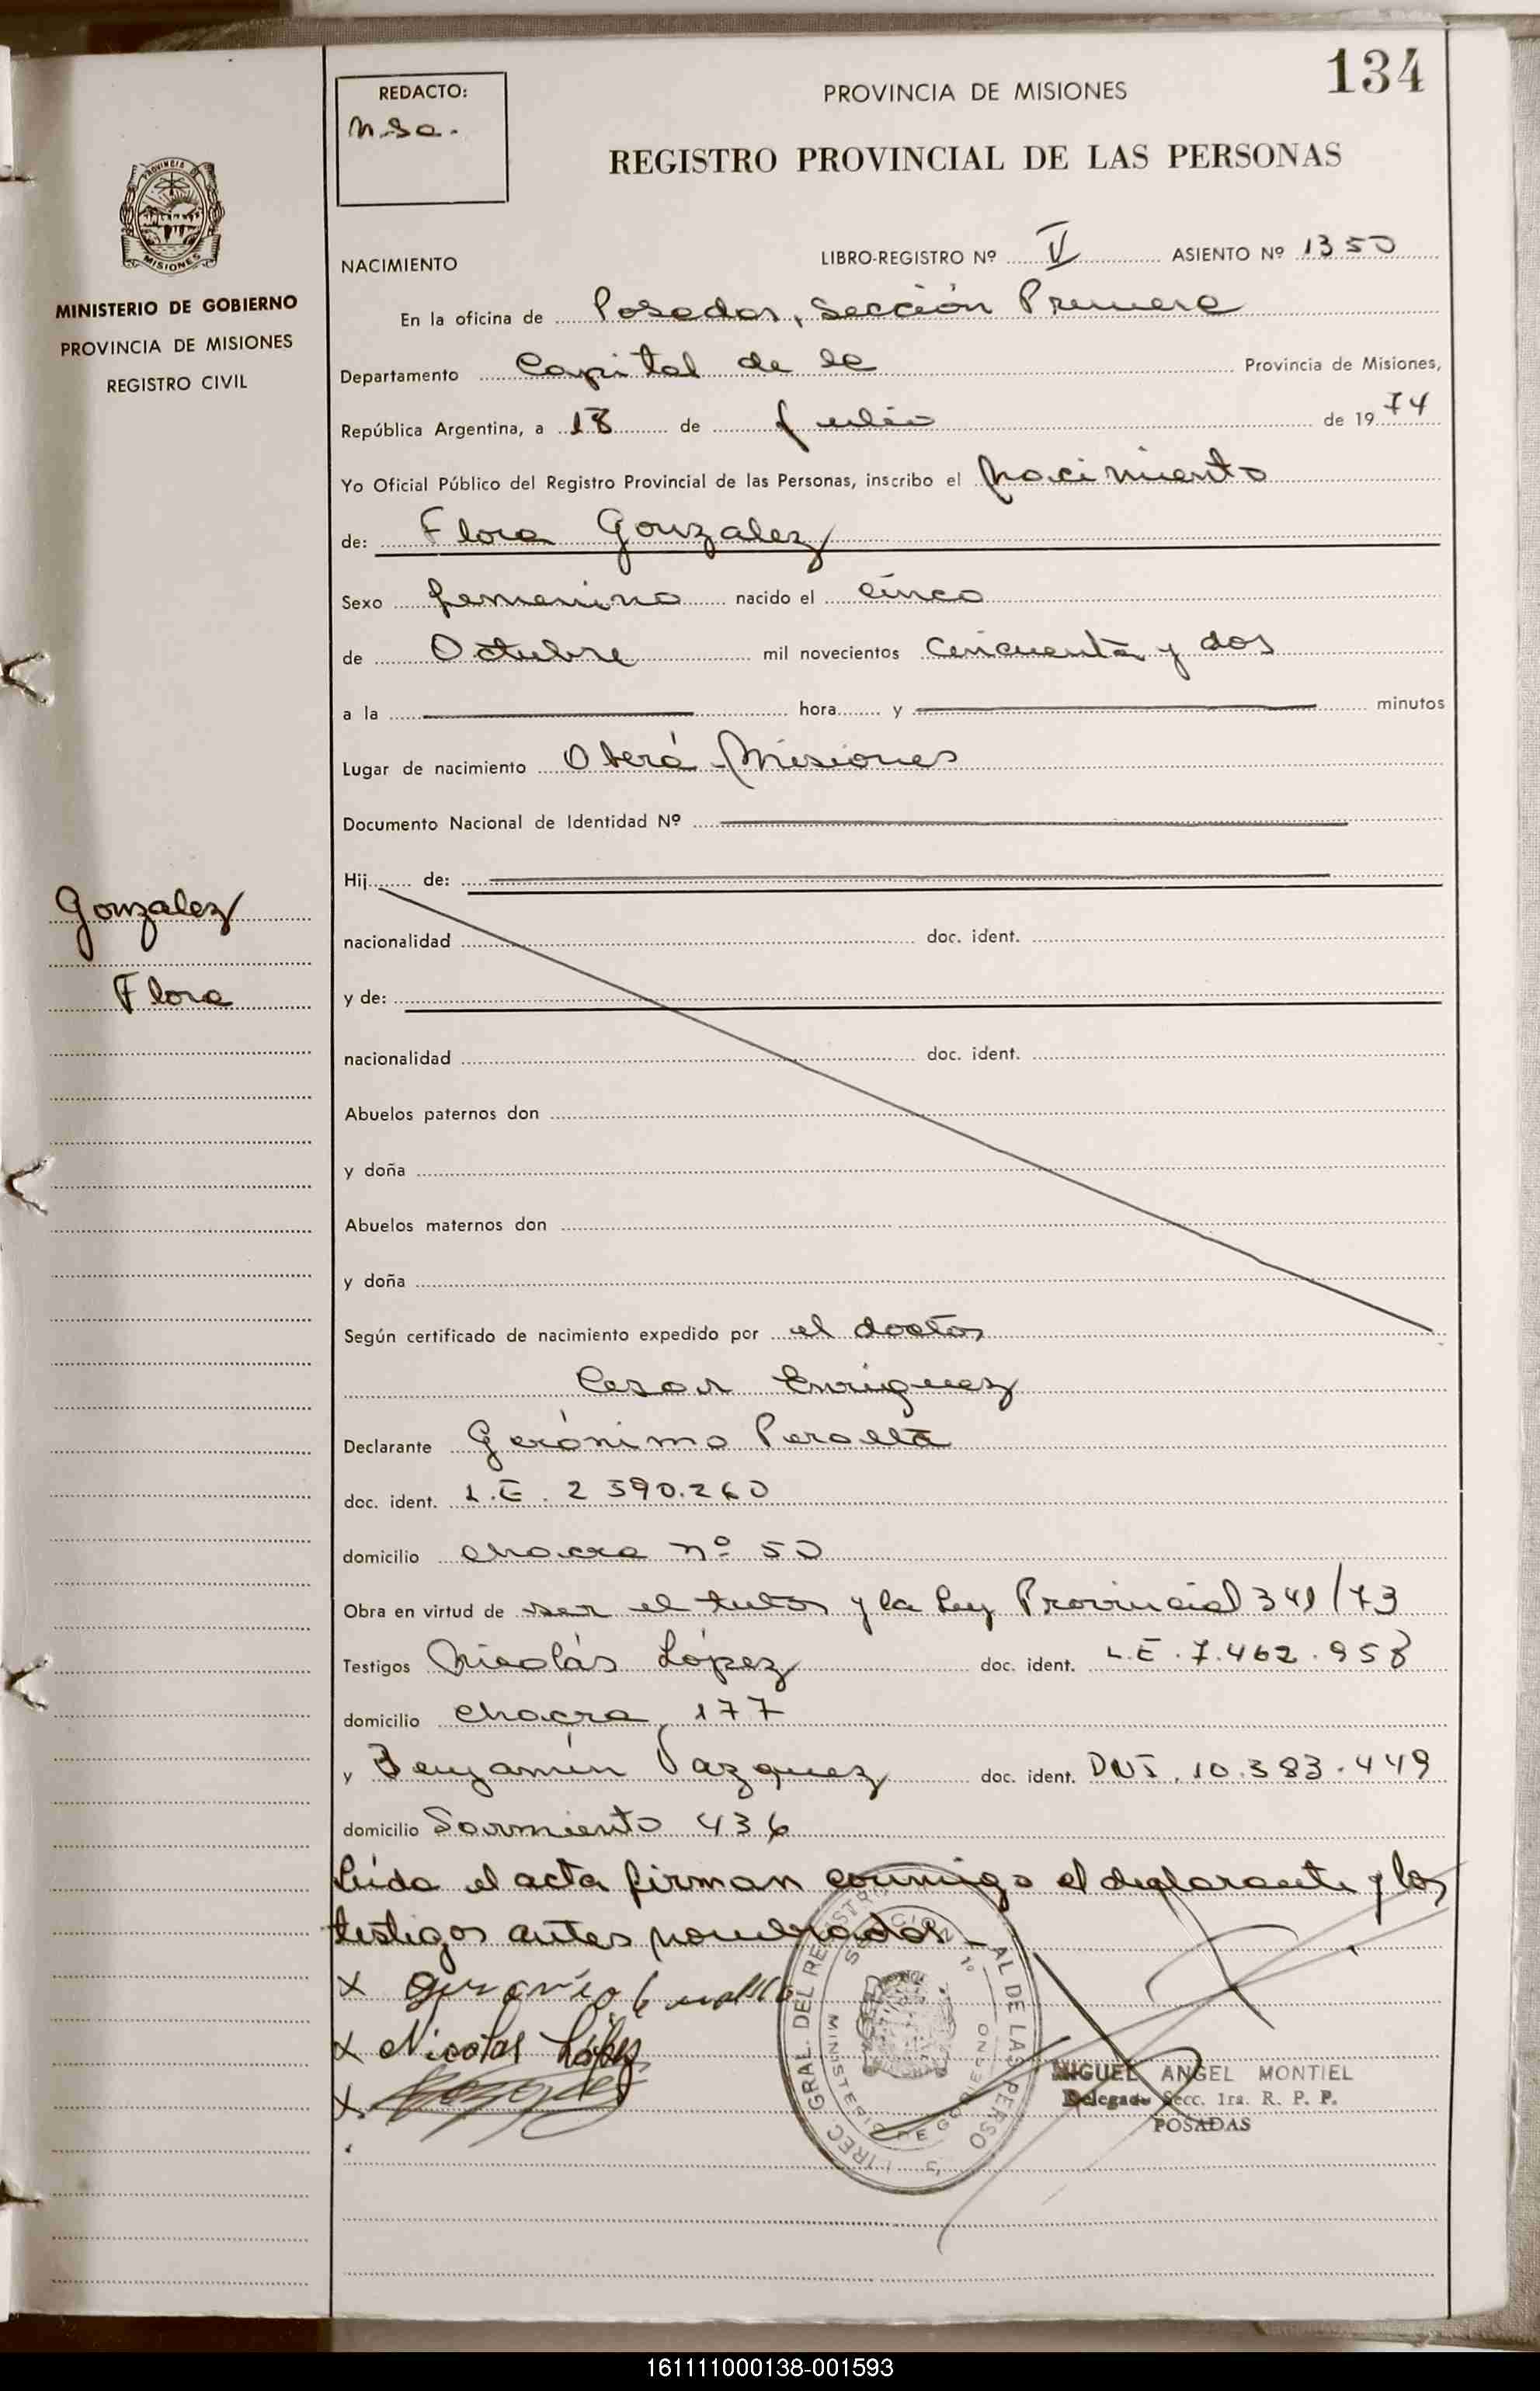 134
REDACTO:
PROVINCIA DE MISIONES
REGISTRO PROVINCIAL DE LAS PERSONAS
NACIMIENTO
LIBRO-REGISTRO Nº V ASIENTO Nº 1350
MISIONES
MINISTERIO DE GOBIERNO
PROVINCIA DE MISIONES
REGISTRO CIVIL
En la oficina de Posadas, Sección Primera
Departamento Capital de la Provincia de Misiones,
República Argentina, a 18 de Julio de 1974
Yo Oficial Público del Registro Provincial de las Personas, inscribo el nacimiento
de: Flora Gonzalez
Sexo femenino nacido el cinco
de Octubre mil novecientos cincuenta y dos
a la hora y minutos
Lugar de nacimiento Oberá Misiones
Documento Nacional de Identidad Nº
Hij de:
Gonzalez
Flora
nacionalidad doc. ident.
y de:
nacionalidad doc. ident.
Abuelos paternos don
y doña
Abuelos maternos don
y doña
Según certificado de nacimiento expedido por el doctor
Cesar Enriquez
Declarante Gerónimo Peralta
doc. ident. L.E. 2 590.260
domicilio chacra nº 50
Obra en virtud de ser el tutor y la Ley Provincial 341/73
Testigos Nicolás López doc. ident. L.E. 7.462.958
domicilio chacra 177
y Benjamín Vazquez doc. ident. DNI. 10.383.449
domicilio Sarmiento 436
Leída el acta firman conmigo el declarante y los
testigos antes nombrados.-
X
X Nicolas López
X
MIGUEL ANGEL MONTIEL
Delegado Secc. 1ra. R. P. P.
POSADAS
161111000138-001593